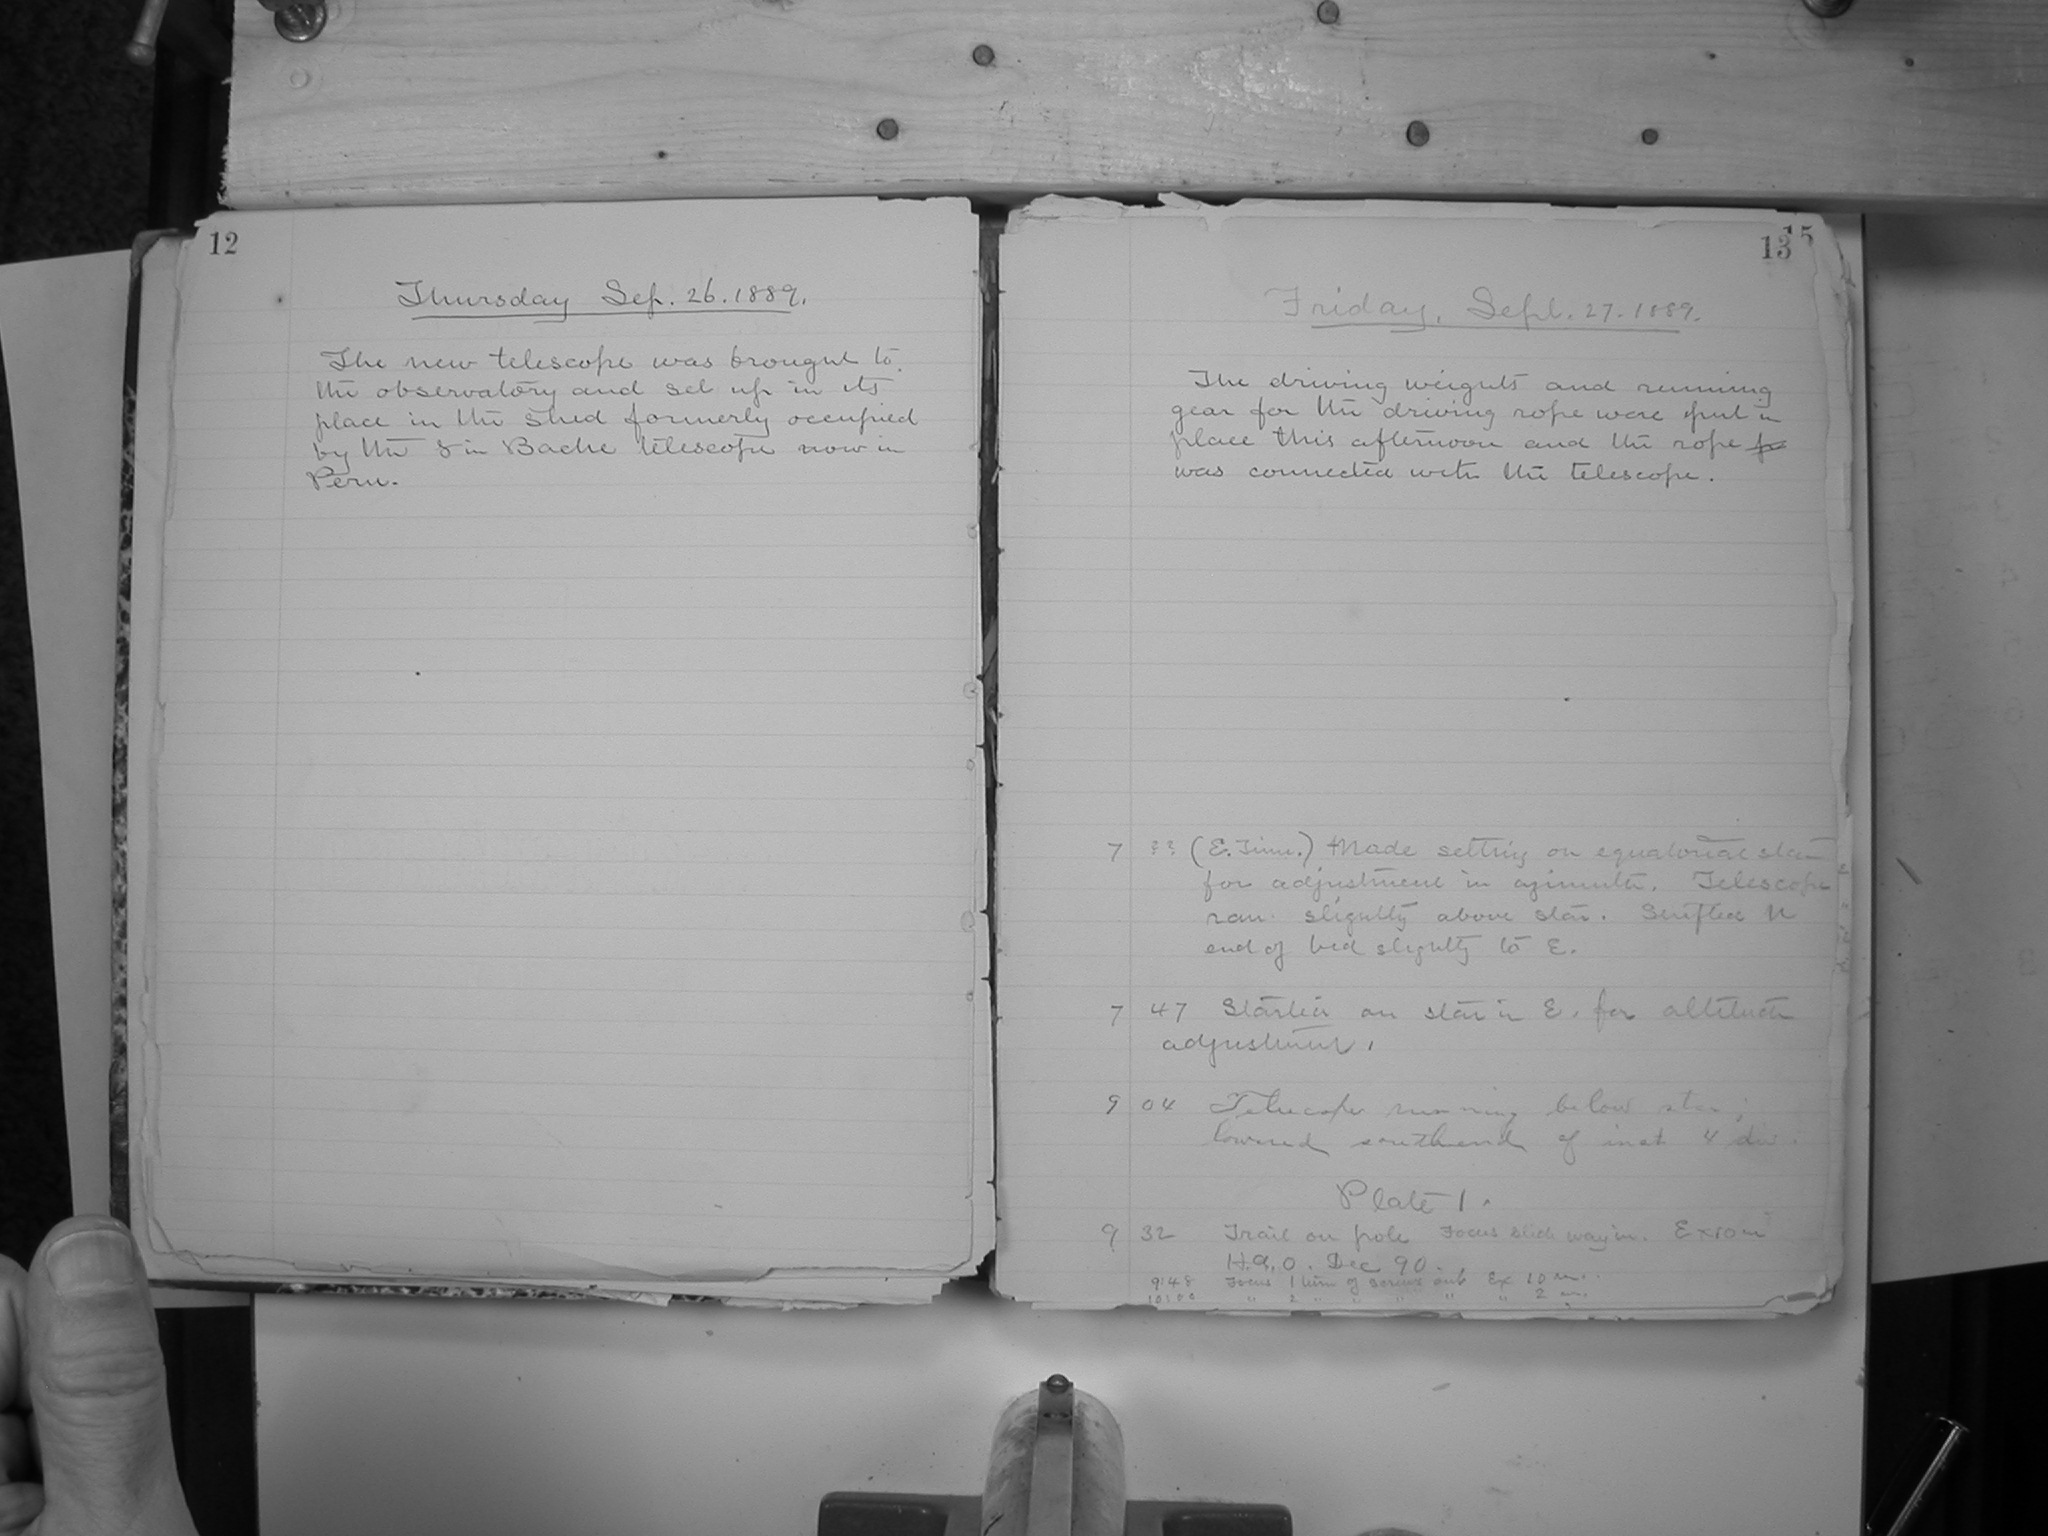 12
Thursday Sep. 26. 1889.
The new telescope was brought to
the observatory and set up in its
place in the shed formerly occupied
by the 8 in Bache telescope now in
Peru.
13
15
Friday, Sept. 27. 1889.
The driving weights and running
gear for the driving rope were put in
place this afternoon and the rope
was connected with the telescope.
7 ?? (E. Time.) Made setting on equatorial star
for adjustment in azimuth. Telescope
ran slightly above star. Shifted N
end of bed slightly to E.
7 47 Started on star in E. for altitude
adjustment.
9 04 Telescope running below star;
lowered south end of inst 4 div.
Plate 1.
9 32 Trail on pole Focus slide way in. Ex 10 m
H.a, 0. Dec 90.
9:48 Focus 1 turn of screws out Ex 10 m.
10:00 " 2 " " " " " 2 m.